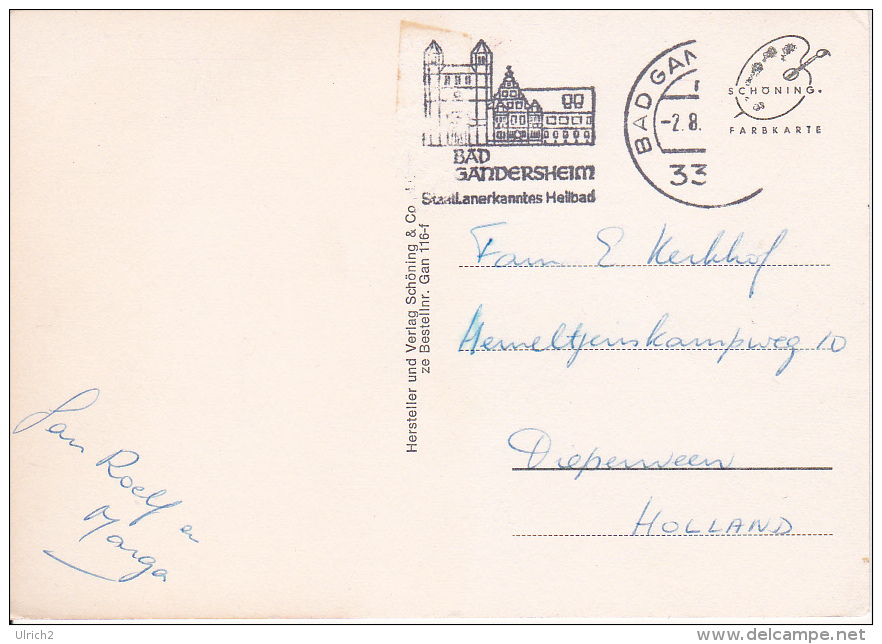 BAD
GANDERSHEIM
Staatl. anerkanntes Heilbad
BAD GAN
-2.8.
33
SCHÖNING.
FARBKARTE
Hersteller und Verlag Schöning & Co
ze Bestellnr. Gan 116-f
Fam E. Kerkhof
Hemeltjenskampweg 10
Diepenveen
HOLLAND
Jan Roelf en
Marga
Ulrich2
www.delcampe.net